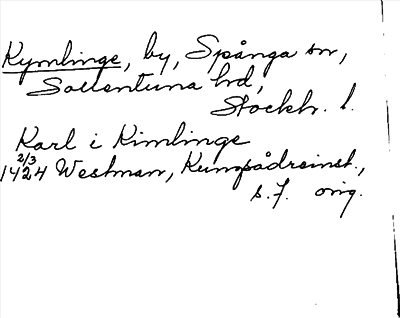 Kymlinge, by, Spånga sn,
Sollentuna hd,
Stockh. l.
Karl i Kimlinge
2/3
1424 Westman, Kungsådreinst.,
s. 7. orig.